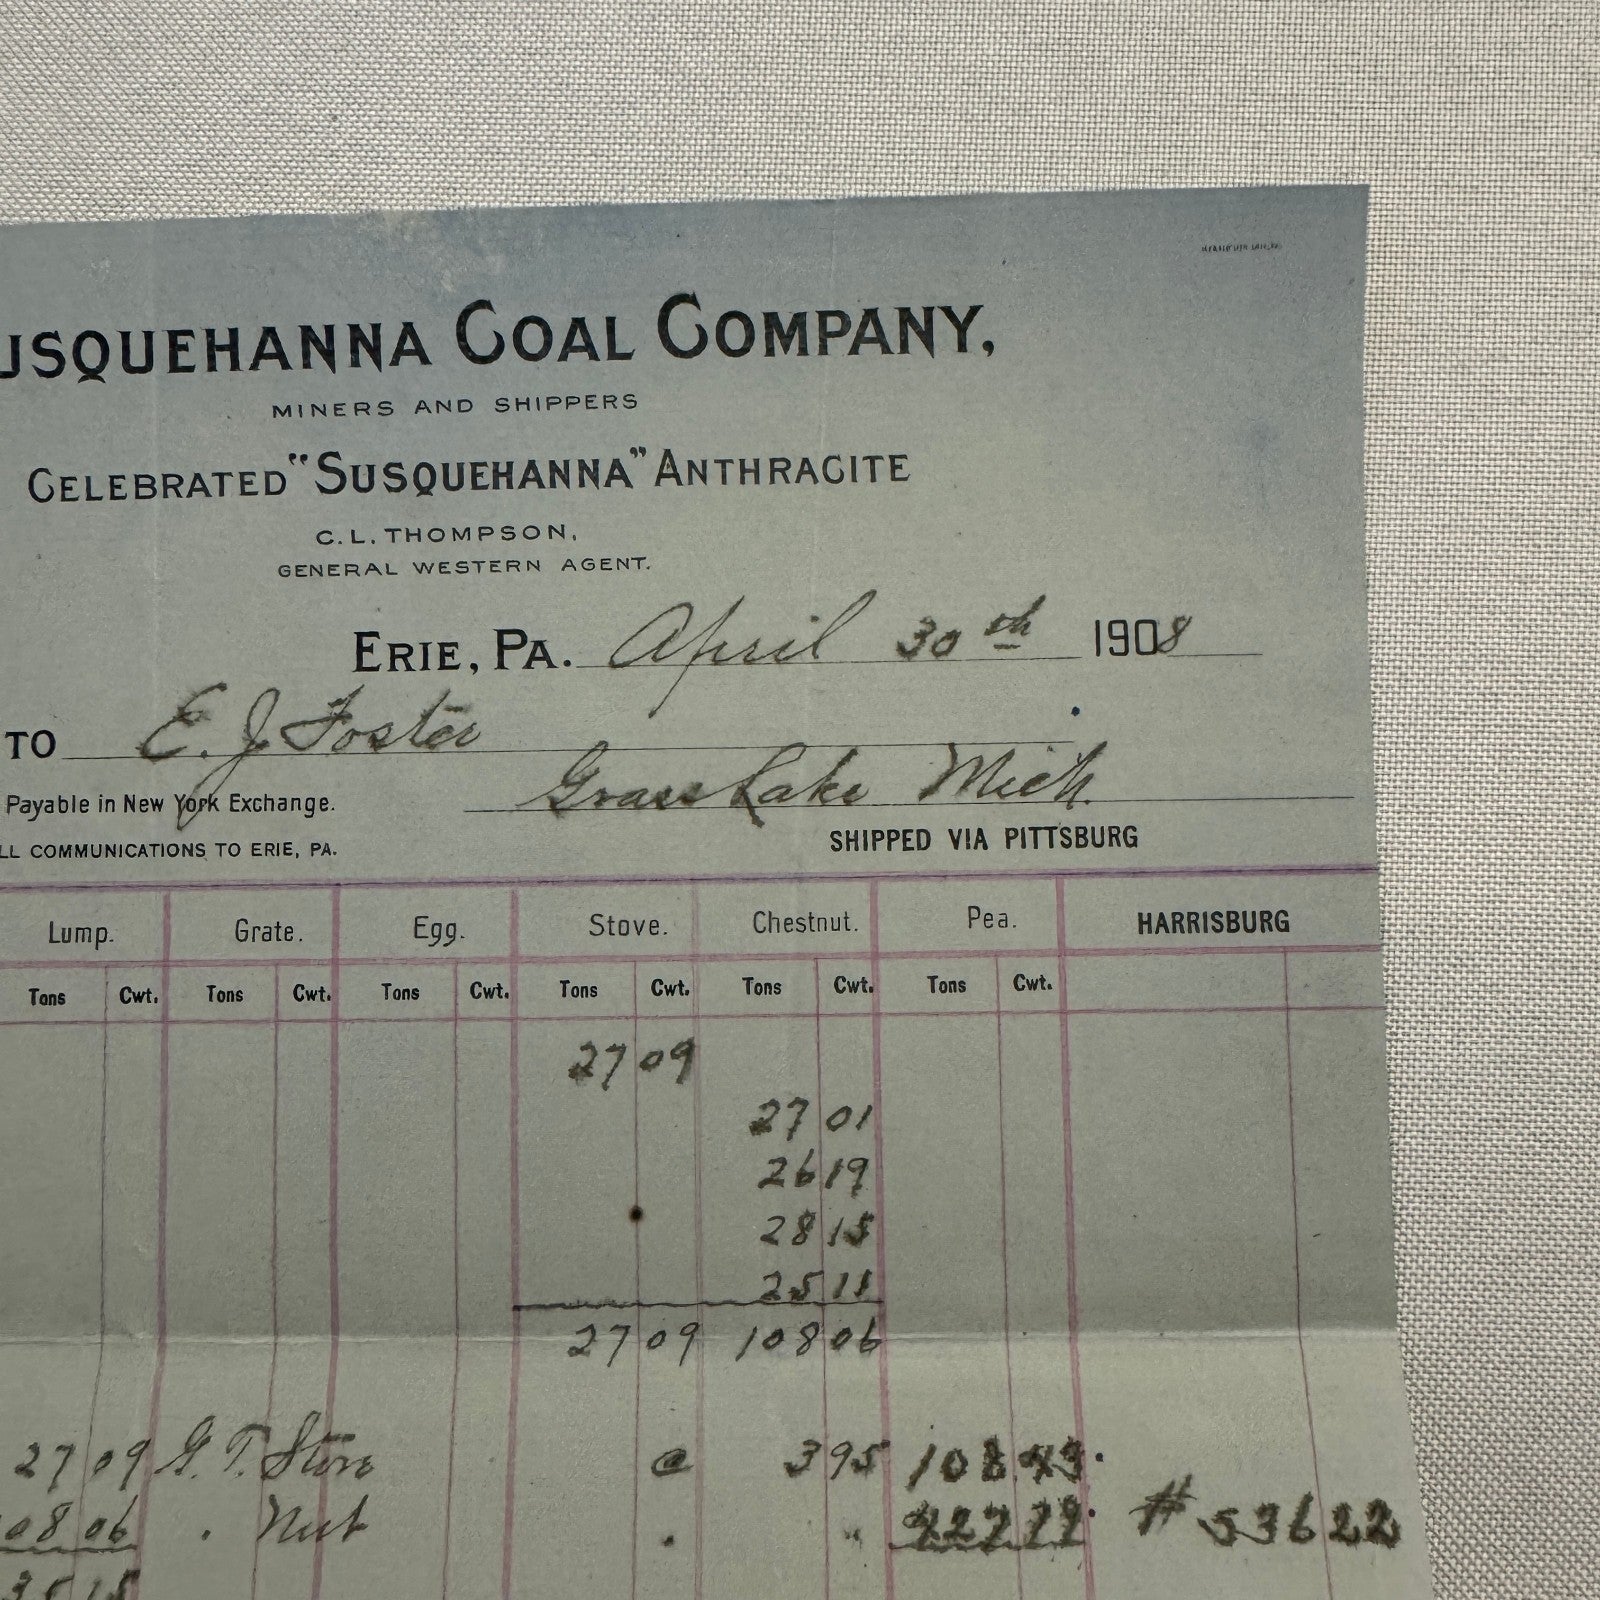 USQUEHANNA COAL COMPANY,
MINERS AND SHIPPERS
CELEBRATED "SUSQUEHANNA" ANTHRACITE
C. L. THOMPSON,
GENERAL WESTERN AGENT.
ERIE, PA. April 30th 1908
TO E. J Foster
Grass Lake Mich.
Payable in New York Exchange.
SHIPPED VIA PITTSBURG
LL COMMUNICATIONS TO ERIE, PA.
Lump. Grate. Egg. Stove. Chestnut. Pea. HARRISBURG
Tons Cwt. Tons Cwt. Tons Cwt. Tons Cwt. Tons Cwt. Tons Cwt.
27 09
27 01
26 19
28 15
25 11
27 09 108 06
27 09 G. T. Stove @ 3 95 108 43
08 06 " Nut " " 427 79 # 536 22
35 15